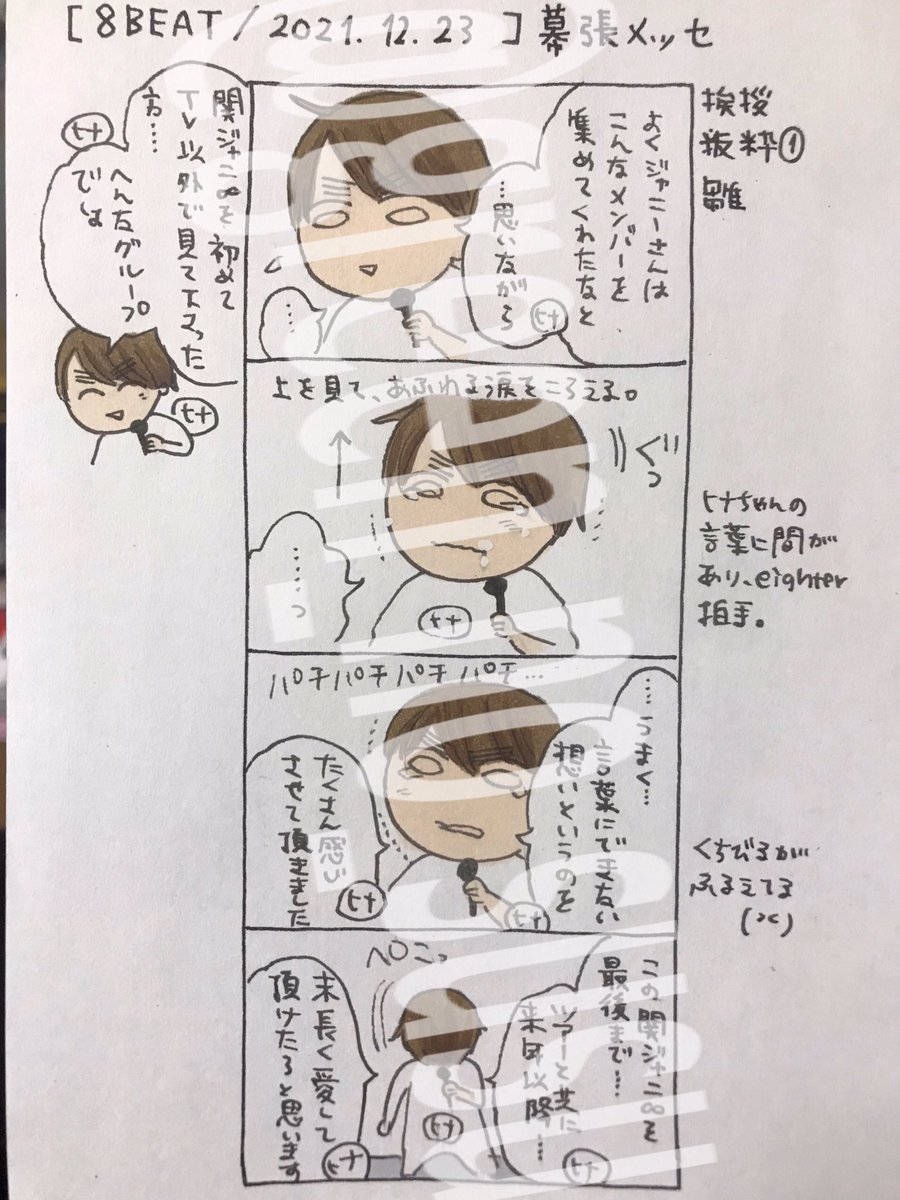 [8BEAT/2021.12.23]幕張メッセ
挨拶
抜粋①
雛
関ジャニ∞を初めて
TV以外で見て下さった
方…
へんなグループ
でしょ
ヒナ
ヒナ
よくジャニーさんは
こんなメンバーを
集めてくれたなと
…思いながら
ヒナ
…
上を見て、あふれる涙をころえる。
ぐっ
↑
……っ
ヒナ
ヒナちゃんの
言葉に間が
あり、eighter
拍手。
パチパチパチパチ…
……うまく…
言葉にできない
想いというのを
ヒナ
たくさん感じ
させて頂きました
ヒナ
くちびるが
ふるえてる
この関ジャニ∞を
最後まで…
ツアーと共に
来年以降…
ヒナ
ペこっ
末長く愛して
頂けたらと思います
ヒナ
ヒナ